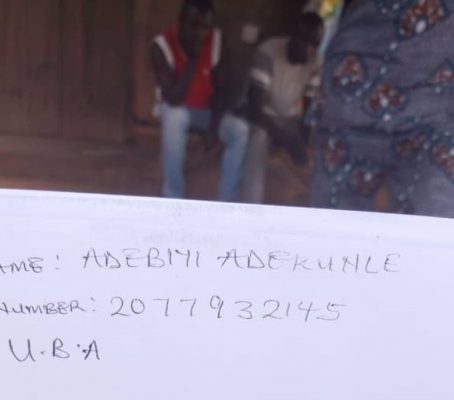 AME: ADEBIYI ADEKUNLE
NUMBER: 2077932145
U.B.A